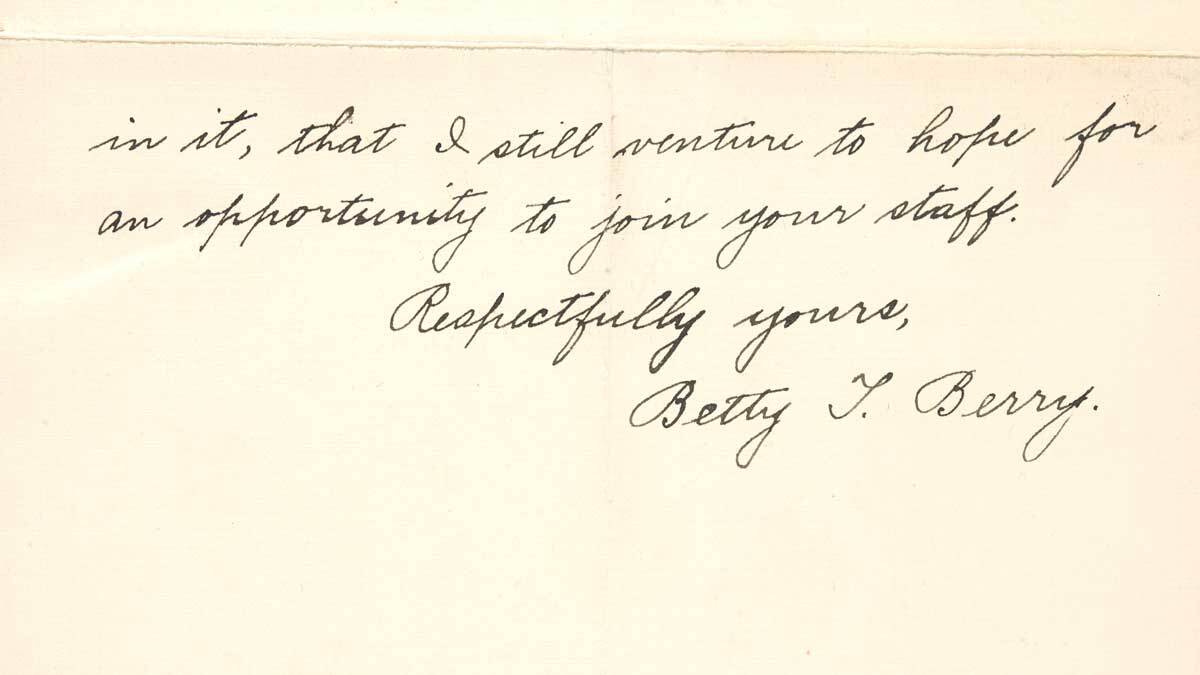 in it, that I still venture to hope for
an opportunity to join your staff.
Respectfully yours,
Betty T. Berry.